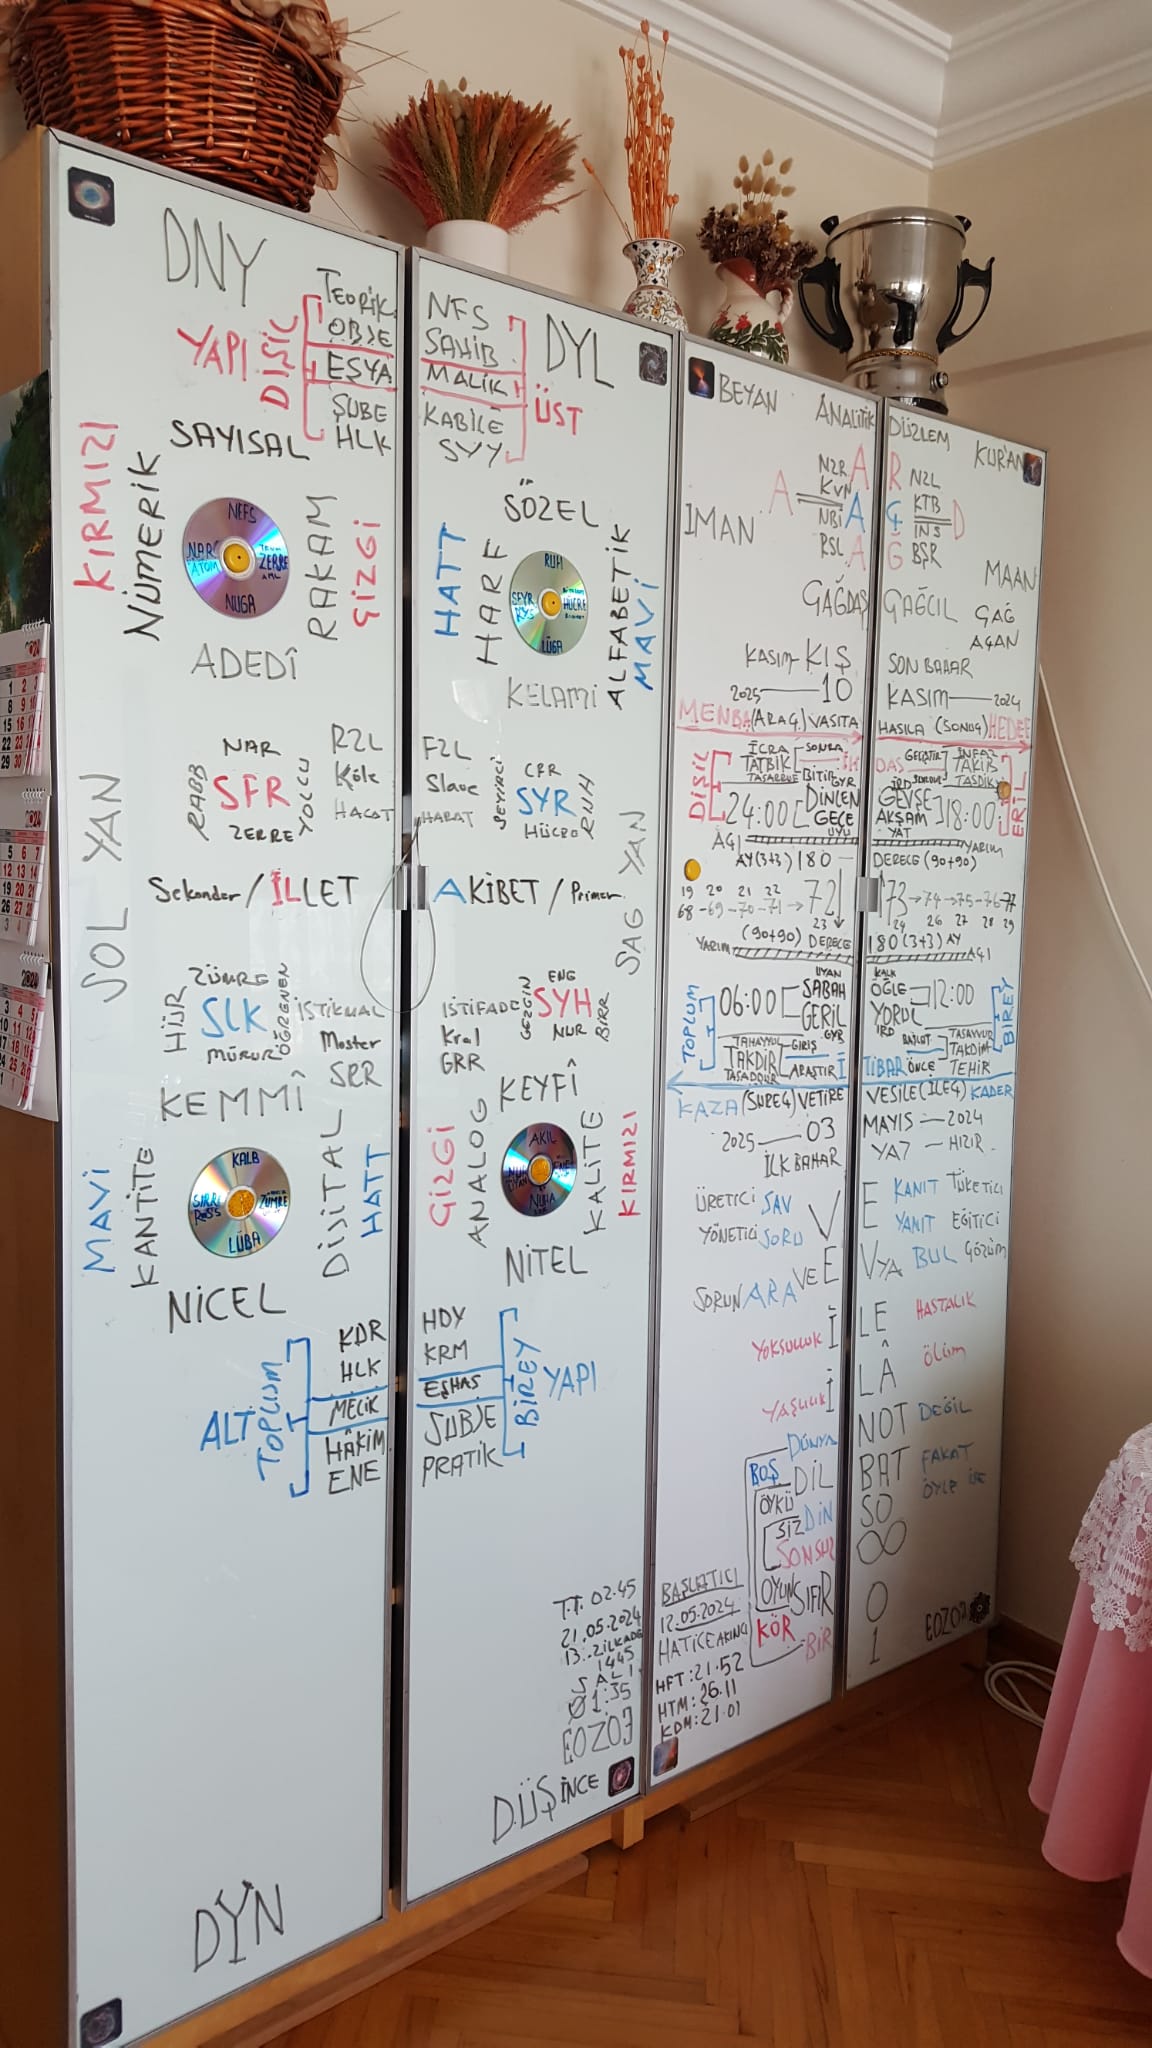 DNY
TEORİK
OBJE
EŞYA
ŞUBE
HLK
YAPI
DİŞİL
SAYISAL
KIRMIZI
NÜMERİK
NEFS
ATOM
ZERRE
NUGA
RAKAM
ÇİZGİ
ADEDÎ
NAR
RABB
SFR
YOLCU
ZERRE
RZL
Köle
HACAT
SOL YAN
Sekonder / İLLET
ZÜMRE
HIJR
SLK
ÖĞRENEN
MÜRUR
İSTİKMAL
Master
SRR
KEMMÎ
MAVİ
KANTİTE
KALB
SIRR
ZÜMRE
LÜBA
DİJİTAL
HATT
NİCEL
KDR
HLK
MELİK
HÂKİM
ENE
ALT
TOPLUM
DYN
NFS
SAHİB
MALİK
KABİLE
ŞYY
ÜST
DYL
SÖZEL
HATT
HARF
RUH
SEYR
HÜCRE
LÜGA
ALFABETİK
MAVİ
KELAMİ
FZL
Slave
HARAT
SEYİRCİ
CFR
SYR
HÜCRE
RUH
SAĞ YAN
AKİBET / Primer
İSTİFADE
Kral
GRR
GEZGİN
ENG
SYH
NUR
BİRR
KEYFÎ
ÇİZGİ
ANALOG
AKIL
NUHA
KALİTE
KIRMIZI
NİTEL
HDY
KRM
EŞHAS
SUBJE
PRATİK
BİREY
YAPI
T.T. 02.45
21.05.2024
13.ZİLKADE
1445
SALI
01:35
EOZO3
DÜŞİNCE
BEYAN
ANALİTİK
DÜZLEM
KUR'AN
İMAN
A
NZR
KVN
NBİ
RSL
A
A
A
R
Ç
Ğ
NZL
KTB
İNS
BŞR
D
MAAN
ÇAĞDAŞ
ÇAĞCIL
ÇAĞ
AÇAN
KASIM - KIŞ
2025 — 10
SON BAHAR
KASIM — 2024
MENBA (ARAÇ) VASITA
HASILA (SONUÇ) HEDEF
DİŞİL
İCRA
TATBİK
TASARRUF
SONRA
BİTİR
24:00
DİNLEN
GECE
UYU
DAS
İNFAZ
TAKİR
TASDİK
GEVŞE
AKŞAM
YAT
18:00
ERİL
AÇI
YARIM
AY (3+3) 180
DERECE (90+90)
19 20 21 22
68 - 69 - 70 - 71 → 72
23
73 → 74 → 75 - 76 - 77
24 26 27 28 29
(90+90) DERECE
YARIM
180 (3+3) AY
AÇI
TOPLUM
06:00
UYAN
SABAH
GERİL
KALK
ÖĞLE
YORUL
12:00
BİREY
TAHAYYÜL
TAKDİR
TASADDUR
GİRİŞ
ARAŞTIR
İ
TİBAR
ÖNCE
TASAVVUR
TAKDİM
TEHİR
KAZA (SÜREÇ) VETİRE
VESİLE (İLEÇ) KADER
2025 — 03
İLK BAHAR
MAYIS — 2024
YAZ — HIZIR
ÜRETİCİ SAV
YÖNETİCİ SORU
V
E
KANIT TÜKETİCİ
YANIT EĞİTİCİ
SORUN ARA VE E
VYA BUL ÇÖZÜM
YOKSULLUK İ
LE HASTALIK
YAŞLILIK İ
LÂ ÖLÜM
NOT DEĞİL
BAT FAKAT
SO ÖYLE İSE
∞
0
1
DÜNYA
BOŞ
DİL
ÖYKÜ
SİZ
DİN
SONSUZ
OYUN
SIFIR
KÖR
BİR
BAŞLATICI
12.05.2024
HATİCE AKINCI
HFT: 21.52
HTM: 26.11
KDM: 21.01
EOZO3